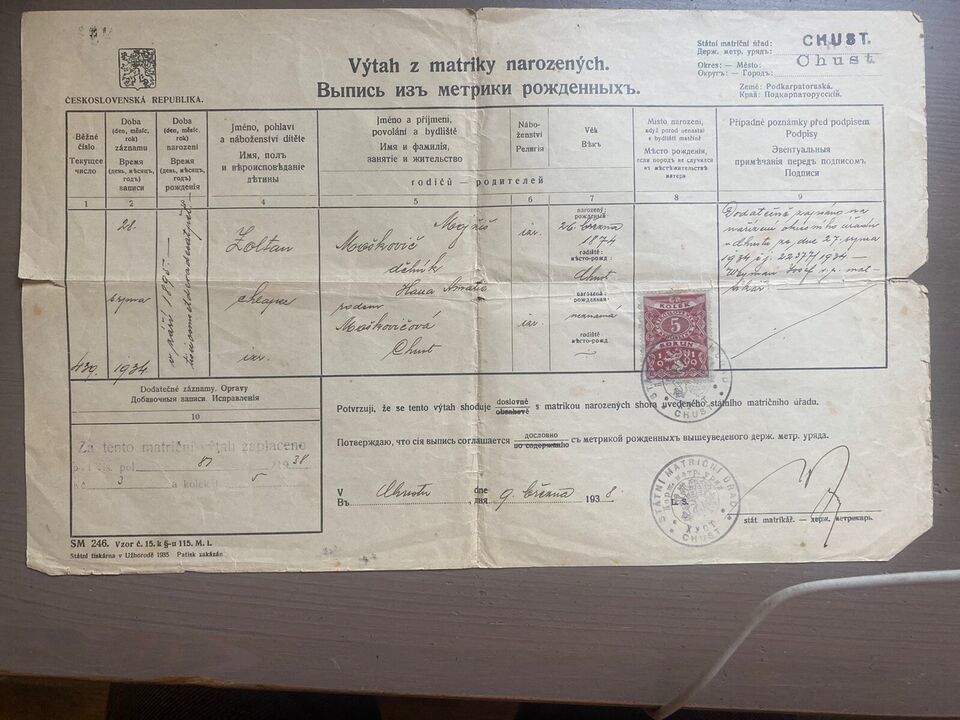 Státní matriční úřad: CHUST.
Держ. матрич. урядъ:
Okres: — Město: Chust
Округъ: — Городъ:
Země: Podkarpatoruská.
Край: Подкарпаторусскій.
ČESKOSLOVENSKÁ REPUBLIKA.
Výtah z matriky narozených.
Выпись изъ метрики рожденныхъ.
Běžné číslo
Текущее число
Doba (den, měsíc, rok) záznamu
Время (день, мѣсяцъ, годъ) записи
Doba (den, měsíc, rok) narození
Время (день, мѣсяцъ, годъ) рожденія
Jméno, pohlaví a náboženství dítěte
Имя, полъ и вѣроисповѣданіе дѣтины
Jméno a příjmení, povolání a bydliště
Имя и фамилія, занятіе и жительство
rodičů — родителей
Nábo- ženství
Религія
Věk
Вѣкъ
Místo narození,
když porod nenastal v bydlišti matčině
Мѣсто рожденія,
если породъ не случился въ мѣстѣжительствѣ матери
Případné poznámky před podpisem.
Podpisy
Эвентуальныя примѣчанія передъ подписомъ.
Подписи
1 2 3 4 5 6 7 8 9
439.
28. srpna 1934
v září 1895.—
Zoltan
chlapec
isr.
Mojžíš
Moškovič
dělník
Hana
rodem
Moškovičová
Chust
isr.
isr.
narozený:
рожденный:
26. března
1874
rodiště:
мѣсто-рожд:
Chust
narozená:
рожденная:
neznámá
rodiště
мѣсто-рожд.
Dodatečně zapsáno na
nařízení okresního úřadu
v Chustu ze dne 27. srpna
1934 čj. 22377/1934 —
Josef v. r. mat-
rikář.
ČR
KOLEK
5
KORUN
1919
Dodatečné záznamy. Opravy
Добавочныя записи. Исправленія
10
Za tento matriční výtah zaplaceno
pod čís. pol. 87 /1938
Kč 3 a kolek 5
Potvrzuji, že se tento výpis shoduje doslovně s matrikou narozených shora uvedeného státního matričního úřadu.
obsahově
Потверждаю, что сія выпись соглашается дословно съ метрикой рожденныхъ вышеуведеного держ. матр. уряда.
по содержанію
V Chustu dne 9. března 1938.
Въ дня
STÁTNÍ MATRIČNÍ ÚŘAD
ХУСТ
CHUST
stát. matrikář. — держ. метрикарь.
SM 246. Vzor č. 15. k §-u 115. M. I.
Státní tiskárna v Užhorodě 1935 Patisk zakázán